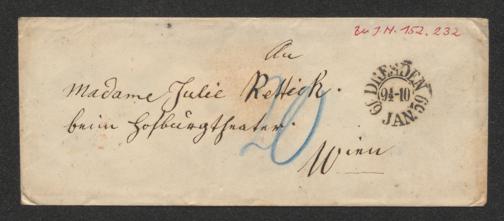 Zu J.N. 152.232
An
Madame Julie Rettich.
beim Hofburgtheater.
Wien
20
DRESDEN
JAN. 59